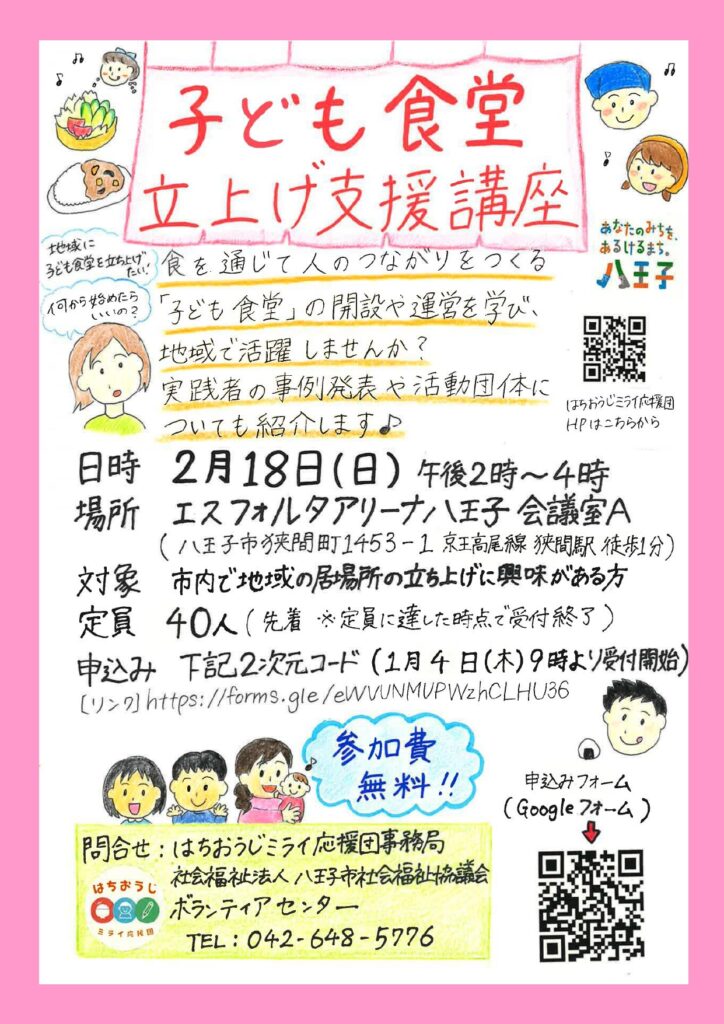 子ども食堂
立上げ支援講座
地域に
子ども食堂を立ち上げ
たい!
何から始めたら
いいの?
食を通じて人のつながりをつくる
「子ども食堂」の開設や運営を学び、
地域で活躍しませんか?
実践者の事例発表や活動団体に
ついても紹介します♪
あなたのみちを、
あるけるまち。
八王子
はちおうじミライ応援団
HPはこちらから
日時 2月18日(日) 午後2時~4時
場所 エスフォルタアリーナ八王子 会議室A
(八王子市狭間町1453-1 京王高尾線 狭間駅 徒歩1分)
対象 市内で地域の居場所の立ち上げに興味がある方
定員 40人(先着 ※定員に達した時点で受付終了)
申込み 下記2次元コード(1月4日(木)9時より受付開始)
[リンク]https://forms.gle/eWVUNMUPWzhCLHU36
参加費
無料!!
申込みフォーム
(Googleフォーム)
問合せ:はちおうじミライ応援団事務局
社会福祉法人 八王子市社会福祉協議会
ボランティアセンター
TEL:042-648-5776
はちおうじ
ミライ応援団